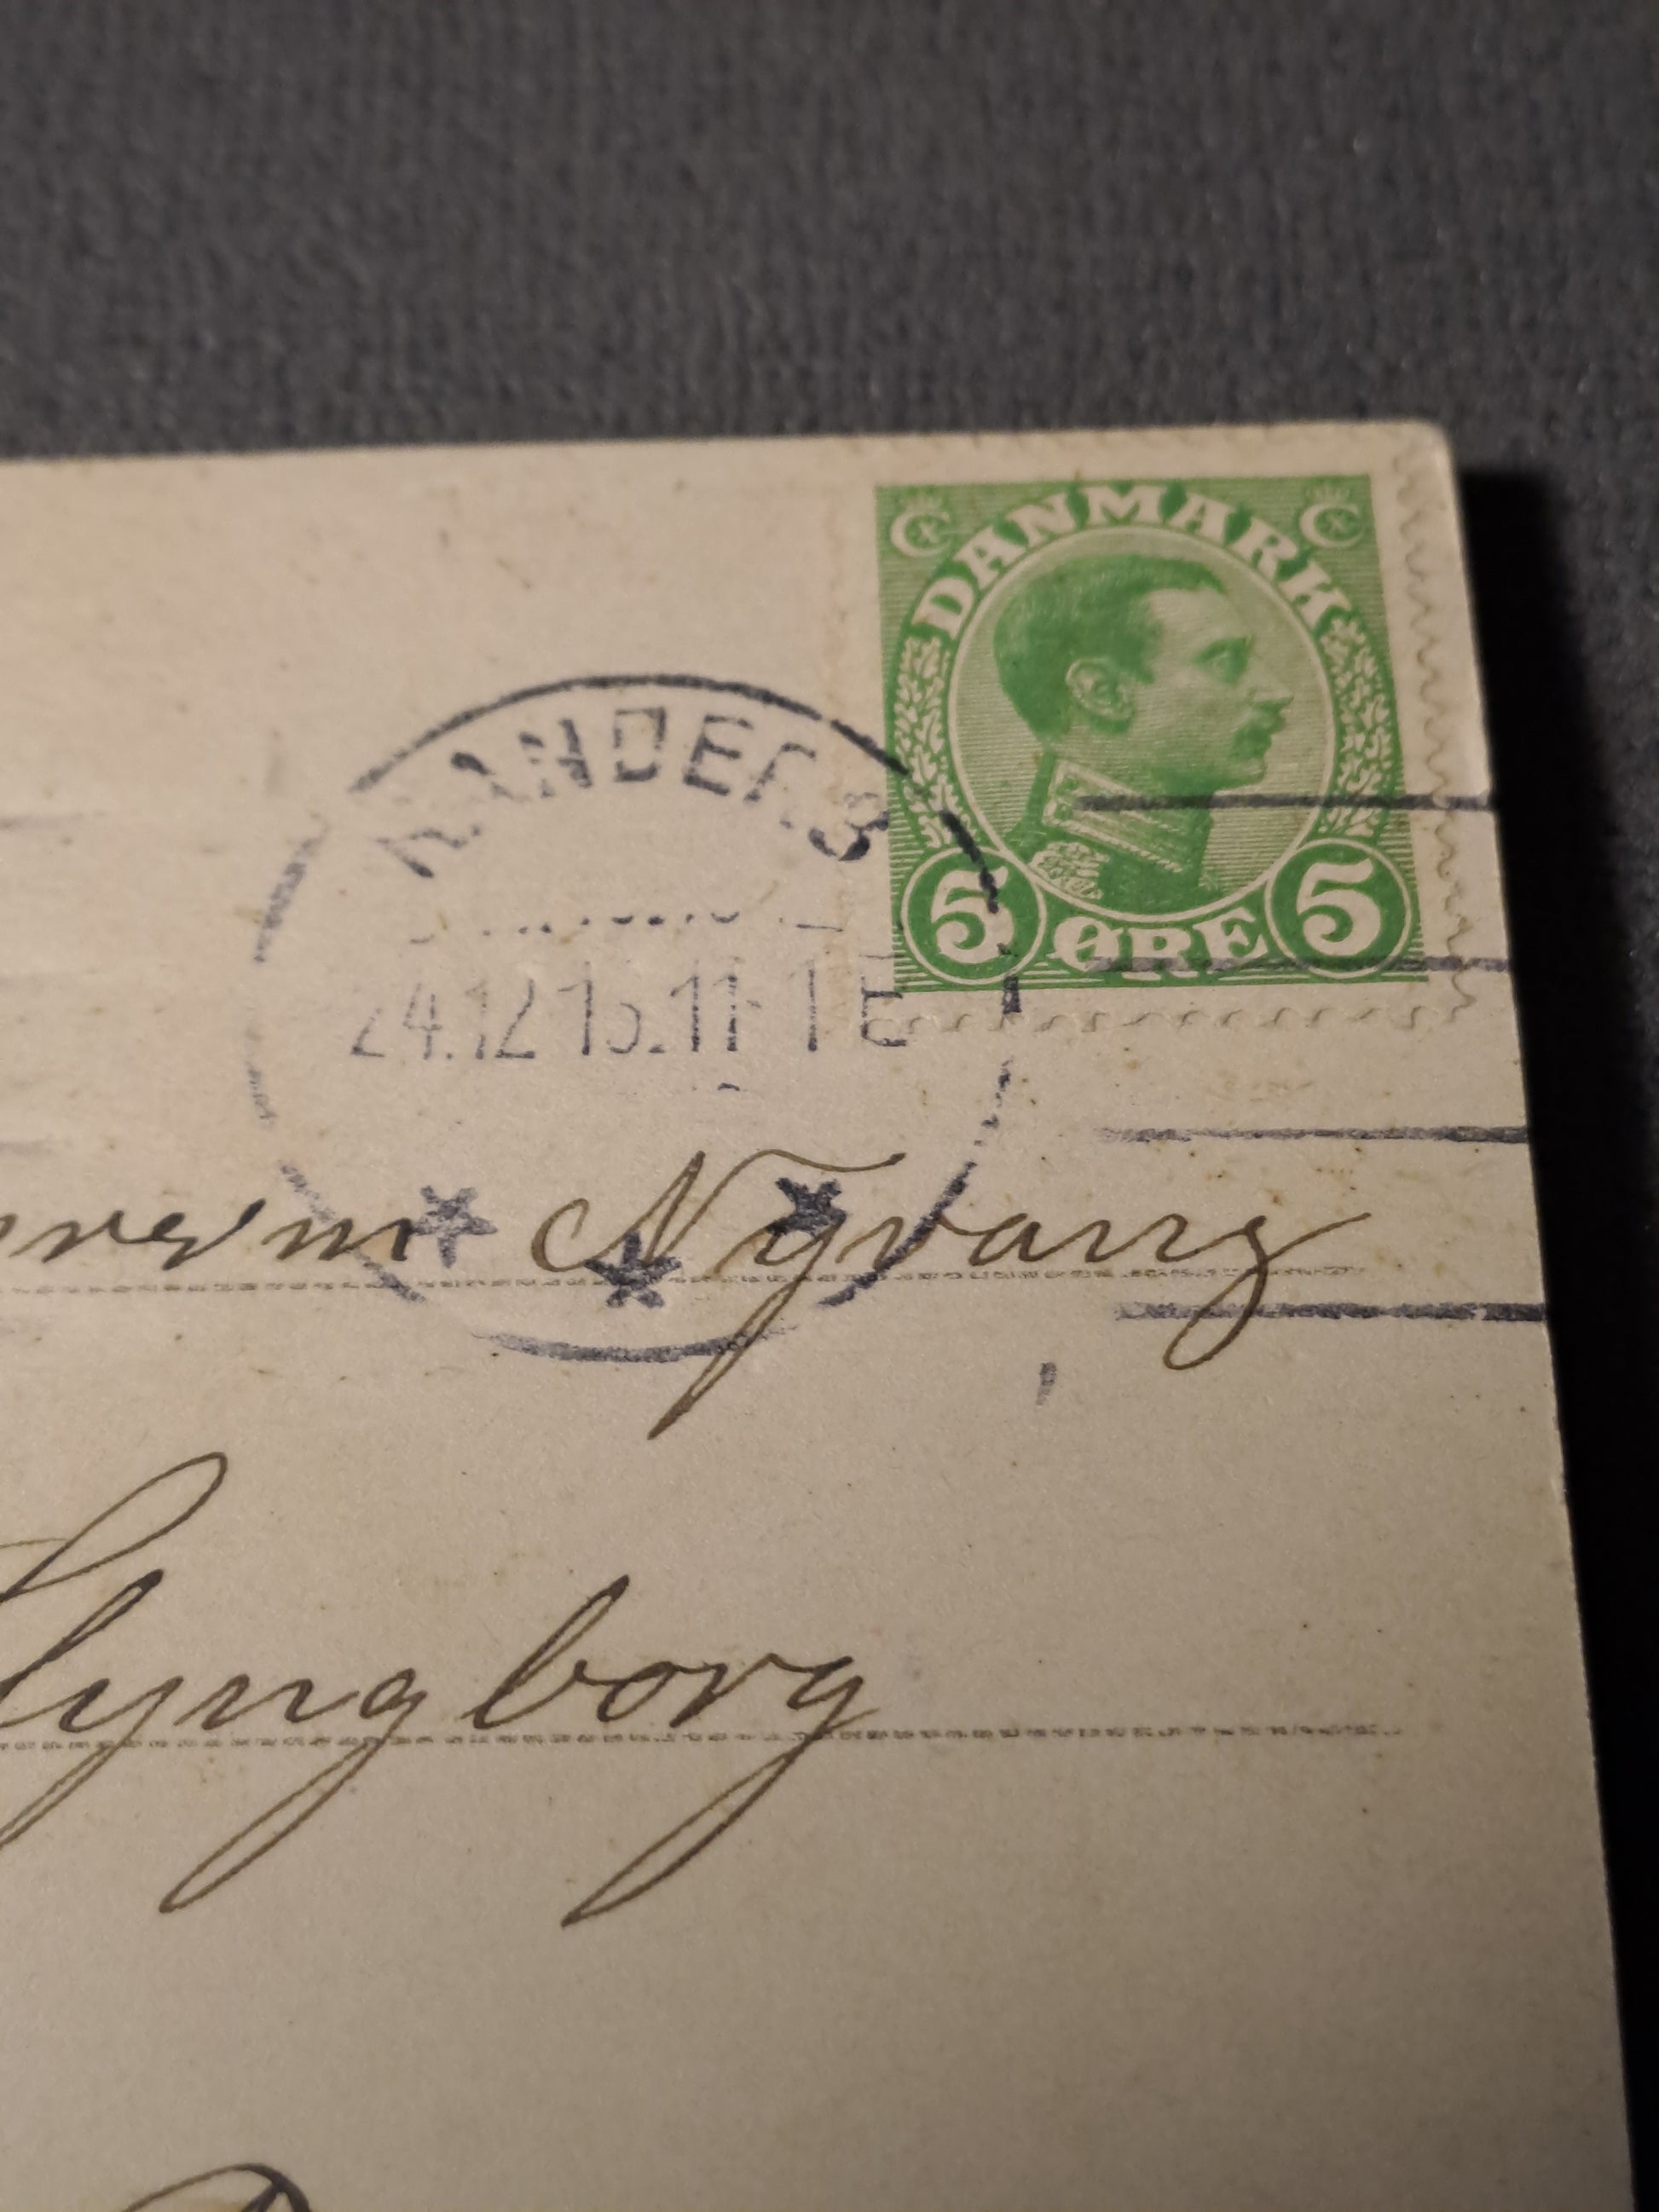 DANMARK
5 ØRE 5
RANDERS
24.12 15.11-1 E
Nyvang
Lyngborg